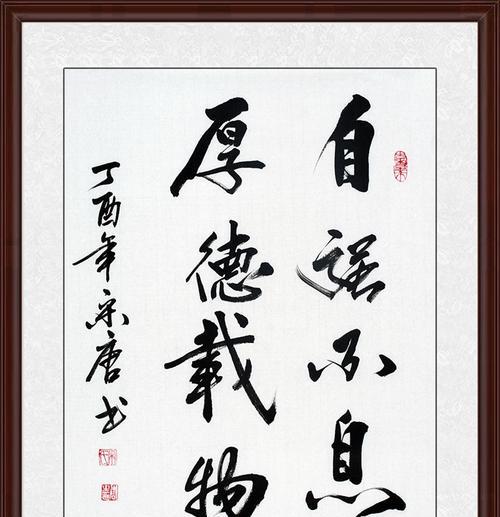 自强不息
厚德載物
丁酉年宋唐书